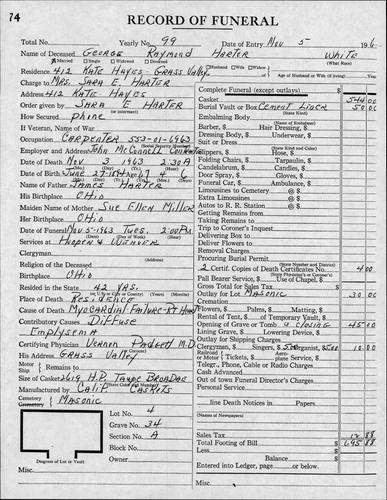 74
RECORD OF FUNERAL
Total No. Yearly No. 99 Date of Entry Nov 5 196
Name of Deceased George Raymond Harter White
Married Single Widowed Divorced (What Race)
Residence 412 Kate Hayes - Grass Valley Husband Wife Widow Age of Husband or Wife (if living) Years
Charge to Mrs. Sara E Harter
Address 412 Kate Hayes
Order given by Sara E Harter
or informant
How Secured Phone
If Veteran, Name of War
Occupation Carpenter 552-01-6963
(Social Security Number)
Employer and Address John McConnell
Date of Death Nov 3 1963 2:30A
Date of Birth June 27-1894 67 4 6
Name of Father James Harter
His Birthplace Ohio
Maiden Name of Mother Sue Ellen Miller
Her Birthplace Ohio
Date of Funeral Nov 5-1963 Tues. 2:00PM
Services at Hooper & Weaver
Clergyman
Religion of the Deceased
Birthplace Ohio
Resided in the State 42 Yrs.
Place of Death Residence
Cause of Death Myocardial Failure-Rt Heart
Contributory Causes Diffuse
Emplysema
Certifying Physician Vernon Padgett M.D.
(or Coroner)
His Address Grass Valley
Motor
Ship Remains to
Size of Casket 2619 H.P.
(State Color and Number)
Manufactured by Calif Caskets
Cemetery
Crematory Masonic
Lot No. 4
Grave No. 34
Section No. A
Block No.
Owner
Diagram of Lot or Vault
Misc.
Complete Funeral (except outlays) $
Casket 544 00
Burial Vault or Box Cement Liner 50 00
(State Kind)
Embalming Body
(Name of Embalmer)
Barber, $ Hair Dressing, $
Dressing Body, $ Underwear, $
Suit or Dress
(State Kind and Color)
Slippers, $ Hose, $
Folding Chairs, $ Tarpaulin, $
Candelabrum, $ Candles, $
Door Spray, $ Gloves, $
Funeral Car, $ Ambulance, $
Limousines to Cemetery @ $
Extra Limousines @ $
Autos to R. R. Station @ $
Getting Remains from
Taking Remains to
Trip to Coroner's Inquest
Delivering Box to
Deliver Flowers to
Removal Charges
Procuring Burial Permit
2 Certif. Copies of Death Certificates No. 4 00
(State Physician's or Coroner's)
Pall Bearer Service, $ Use of Chapel, $
Gross Total for Sales Tax $
Outlay for Lot Masonic 30 00
Cremation
Flowers, $ Palms, $ Matting, $
Rental of Tent, $ of Temporary Vault, $
Opening of Grave or Tomb & Closing 45 00
Lining Grave, $ Lowering Device, $
Outlay for Shipping Charges
Clergymen, $ Singers, $ 5.00 Organist, $ 5.00 10 00
Railroad Aero-
or Motor Tickets, $ plane Service, $
Telegr., Phone, Cable or Radio Charges
Cash Advanced
Out of town Funeral Director's Charges
Personal Service
line Death Notices in Papers
(Names of Newspapers)
Sales Tax 12 88
Total Footing of Bill 695 88
Less
Balance $
Entered into Ledger, page or below.
Misc.